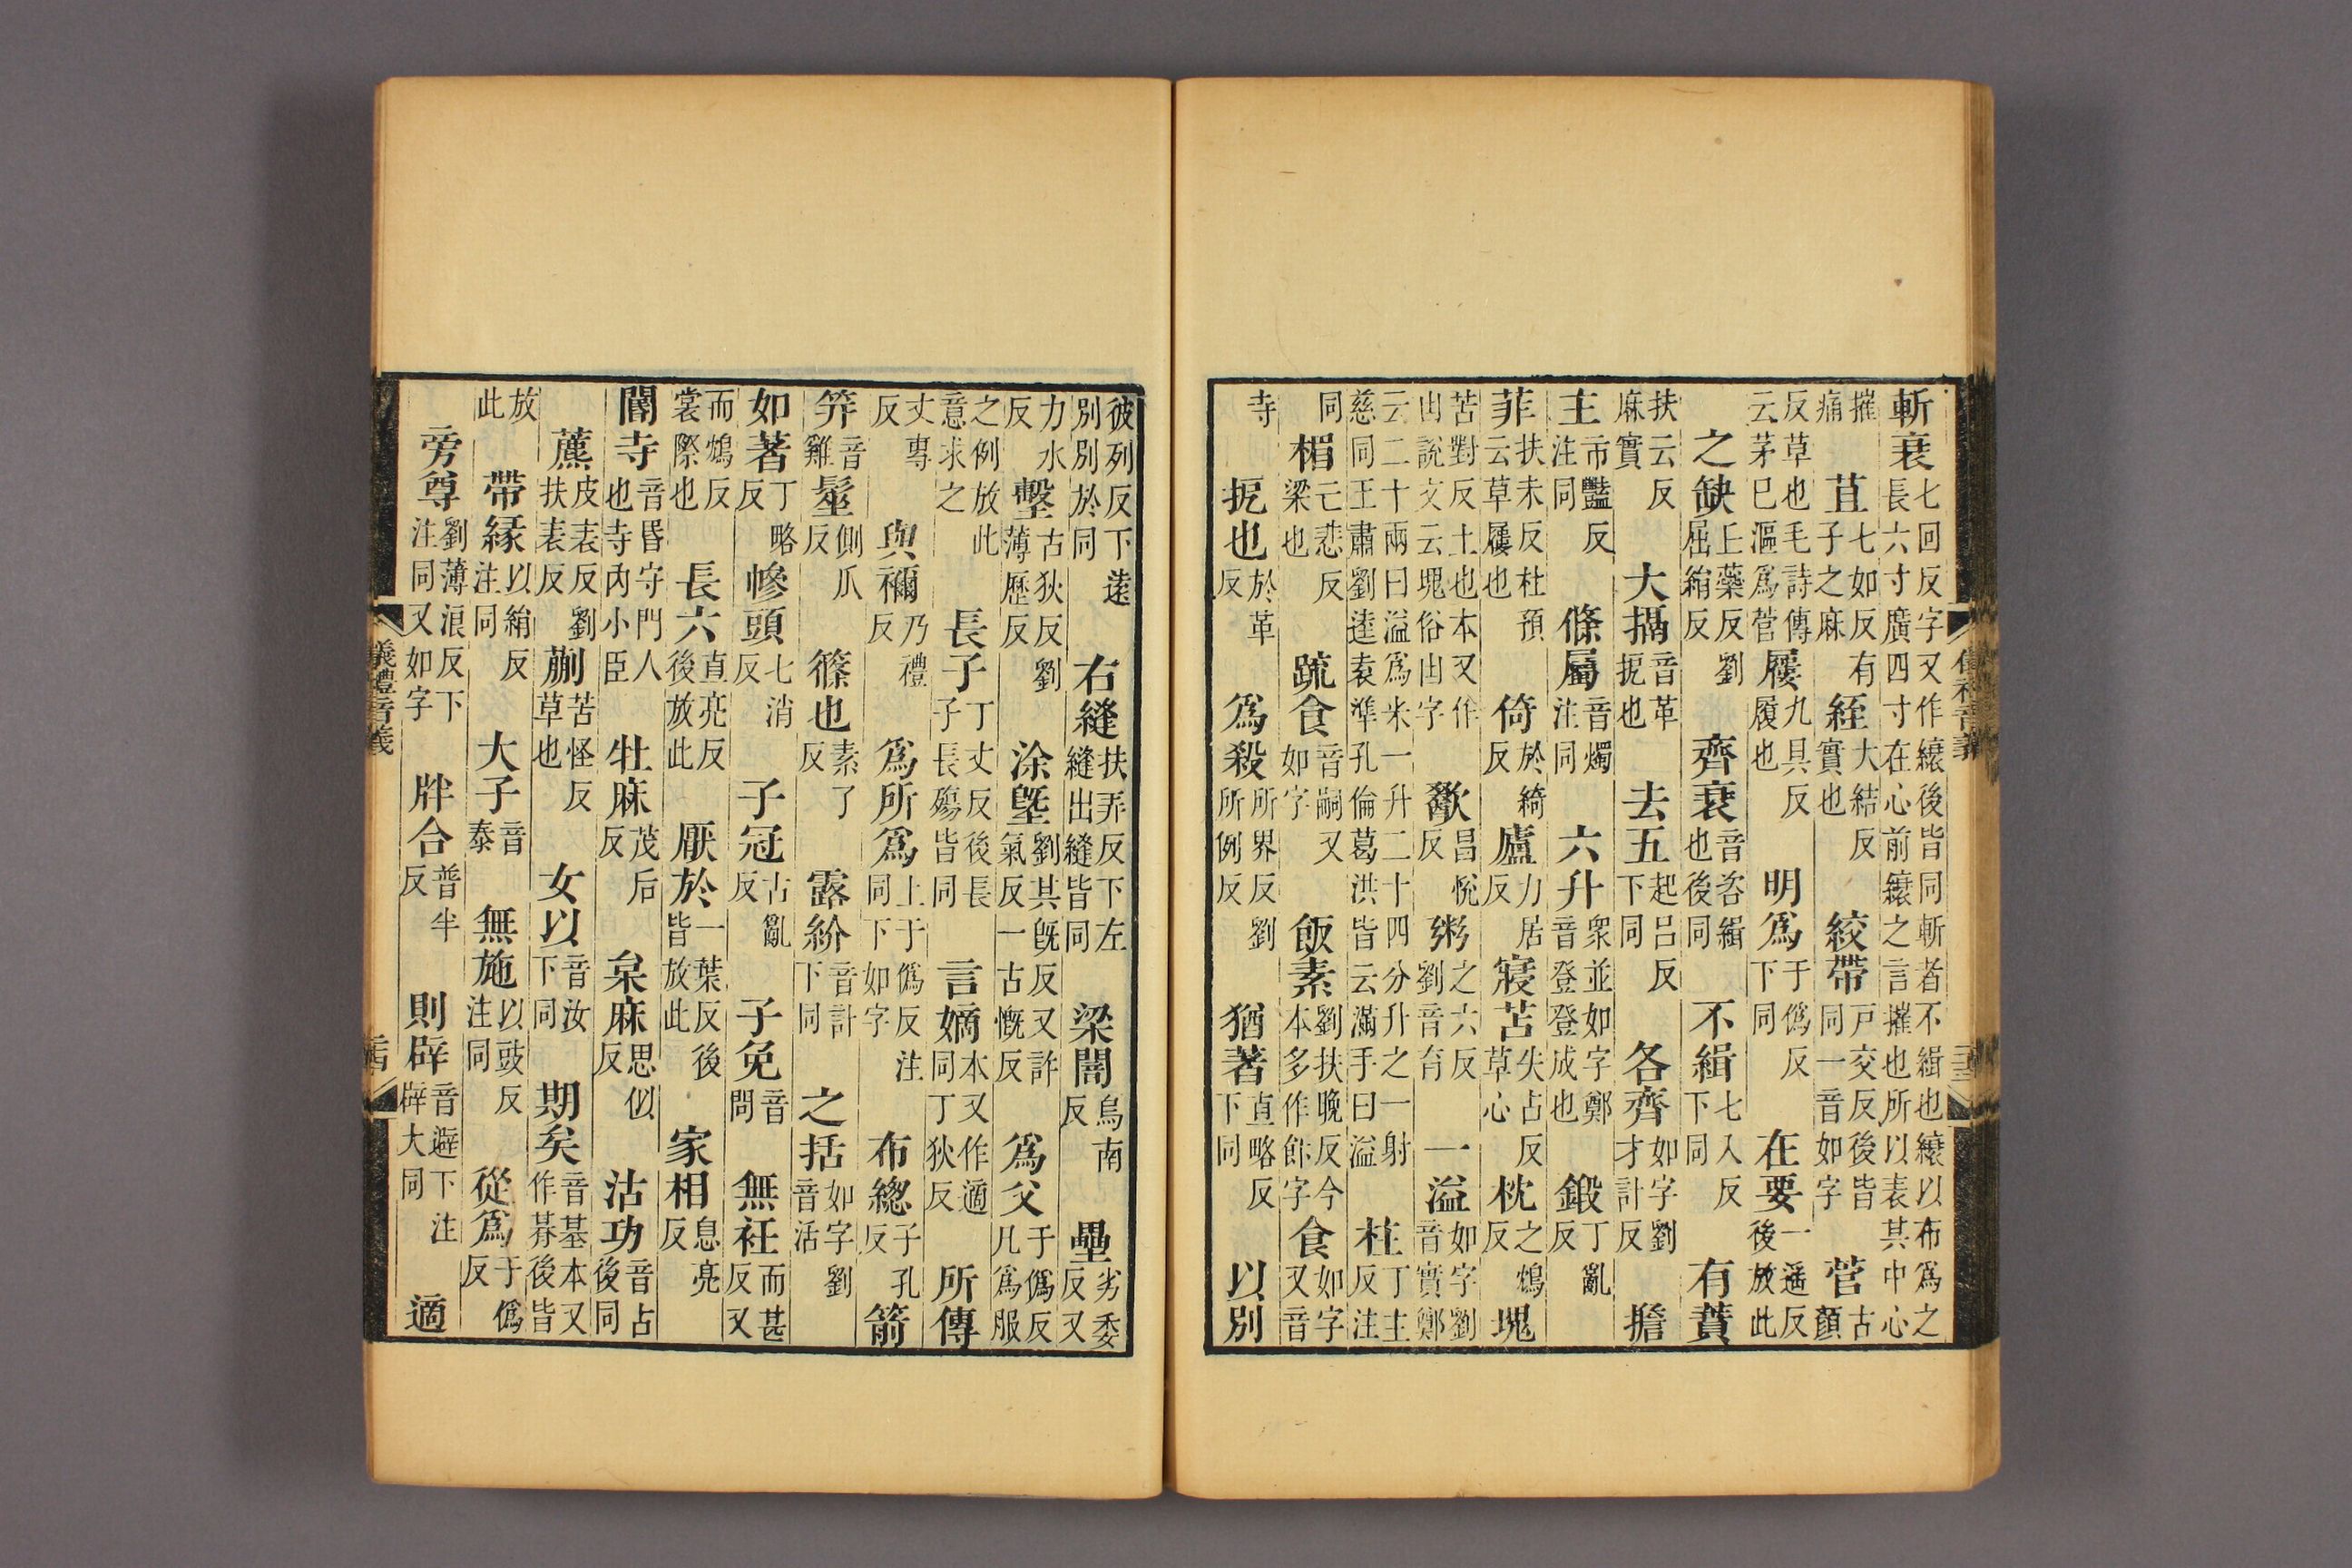 斬衰七回反字又作縗後皆同斬者不緝也縗以布爲之長六寸廣四寸在心前縗之言摧也所以表其中心
摧痛苴七如反有子之麻絰大結反實也絞帶戶交反後皆同一音如字菅古顏
反草也毛詩傳云茅巳漚爲菅屨九具反履也明爲于僞反下同在要一遥反後放此
之缺上藥反劉屈絹反齊衰音咨緝也後同不緝七入反下同有蕡
扶云反麻實大搹音革扼也去五起呂反下同各齊如字劉才計反擔
主市豔反注同條屬音燭注同六升衆並如字鄭音登登成也鍛丁亂反
菲扶未反杜預云草屨也倚於綺反廬力居反寢苫失占反草心枕之鴆反塊
苦對反土也本又作凷說文云塊俗凷字歠昌悅反粥之六反劉音育一溢如字劉音實鄭
云二十兩曰溢爲米一升二十四分升之一射慈同王肅劉逵袁準孔倫葛洪皆云滿手曰溢柱丁主反注
同楣亡悲反梁也疏食音嗣又如字飯素劉扶晚反今本多作飰字食如字又音
寺扼也於革反爲殺所界反劉所例反猶著直略反下同以別
彼列反下遠別別於同右縫扶弄反下左縫出縫皆同梁闇烏南反壘劣委反又
力水反墼古狄反劉薄歷反涂塈劉其旣反又許氣反一古慨反爲父于僞反凡爲服
之例放此意求之長子丁丈反後長子長殤皆同言嫡本又作適同丁狄反所傳
丈專反與禰乃禮反爲所爲上于僞反注同下如字布總子孔反箭
笄音雞髽側爪反篠也素了反露紒音計下同之括如字劉音活
如著丁略反幓頭七消反子冠古亂反子免音問無衽而甚反又
而鴆反裳際也長六直亮反後放此厭於一葉反後皆放此家相息亮反
閽寺音昏守門人也寺內小臣牡麻茂后反枲麻思似反沽功音古後同
藨皮表反劉扶表反蒯苦怪反草也女以音汝下同期矣音基本又作朞後皆
放此帶緣以絹反注同大子音泰無施以豉反注同從爲于僞反
旁尊劉薄浪反下注同又如字牉合普半反則辟音避下注辟大同適
儀禮音義